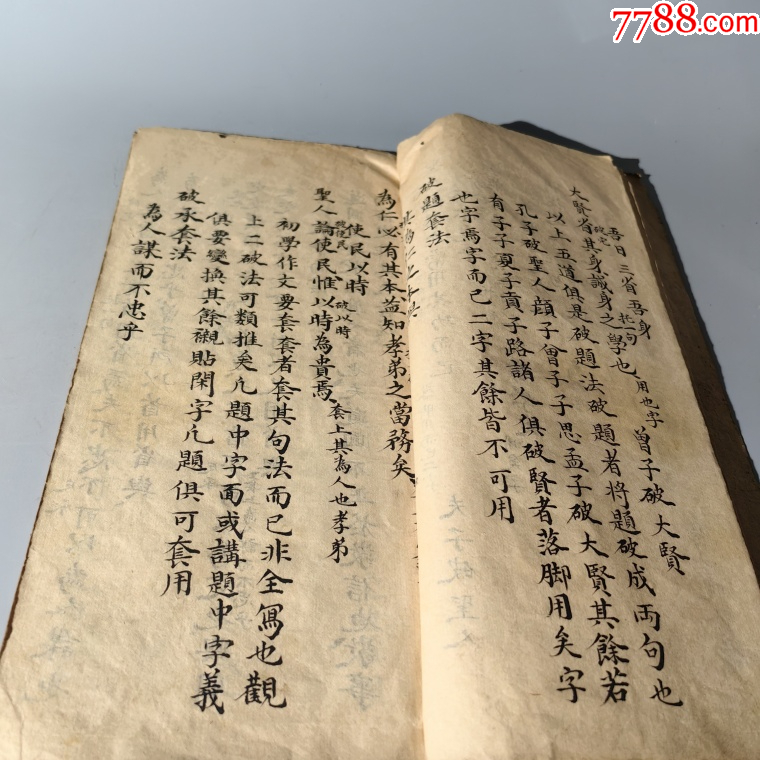 7788.com
吾日三省吾身
大賢省其身誠身之學也 用也字 曾子破大賢
破之
共一句
以上五道俱是破題法破題者將題破成両句也
孔子破聖人顔子曾子子思孟子破大賢其餘若
有子子夏子貢子路諸人俱破賢者落脚用矣字
也字焉字而已二字其餘皆不可用
破題套法
為仁必有其本益知孝弟之當務矣
使民以時
聖人論使民惟以時為貴焉 套上其為人也孝弟
破使民
破以時
初學作文要套套者套其句法而已非全寫也觀
上二破法可類推矣凢題中字面或講題中字義
俱要變換其餘襯貼閑字凢題俱可套用
破承套法
為人謀而不忠乎